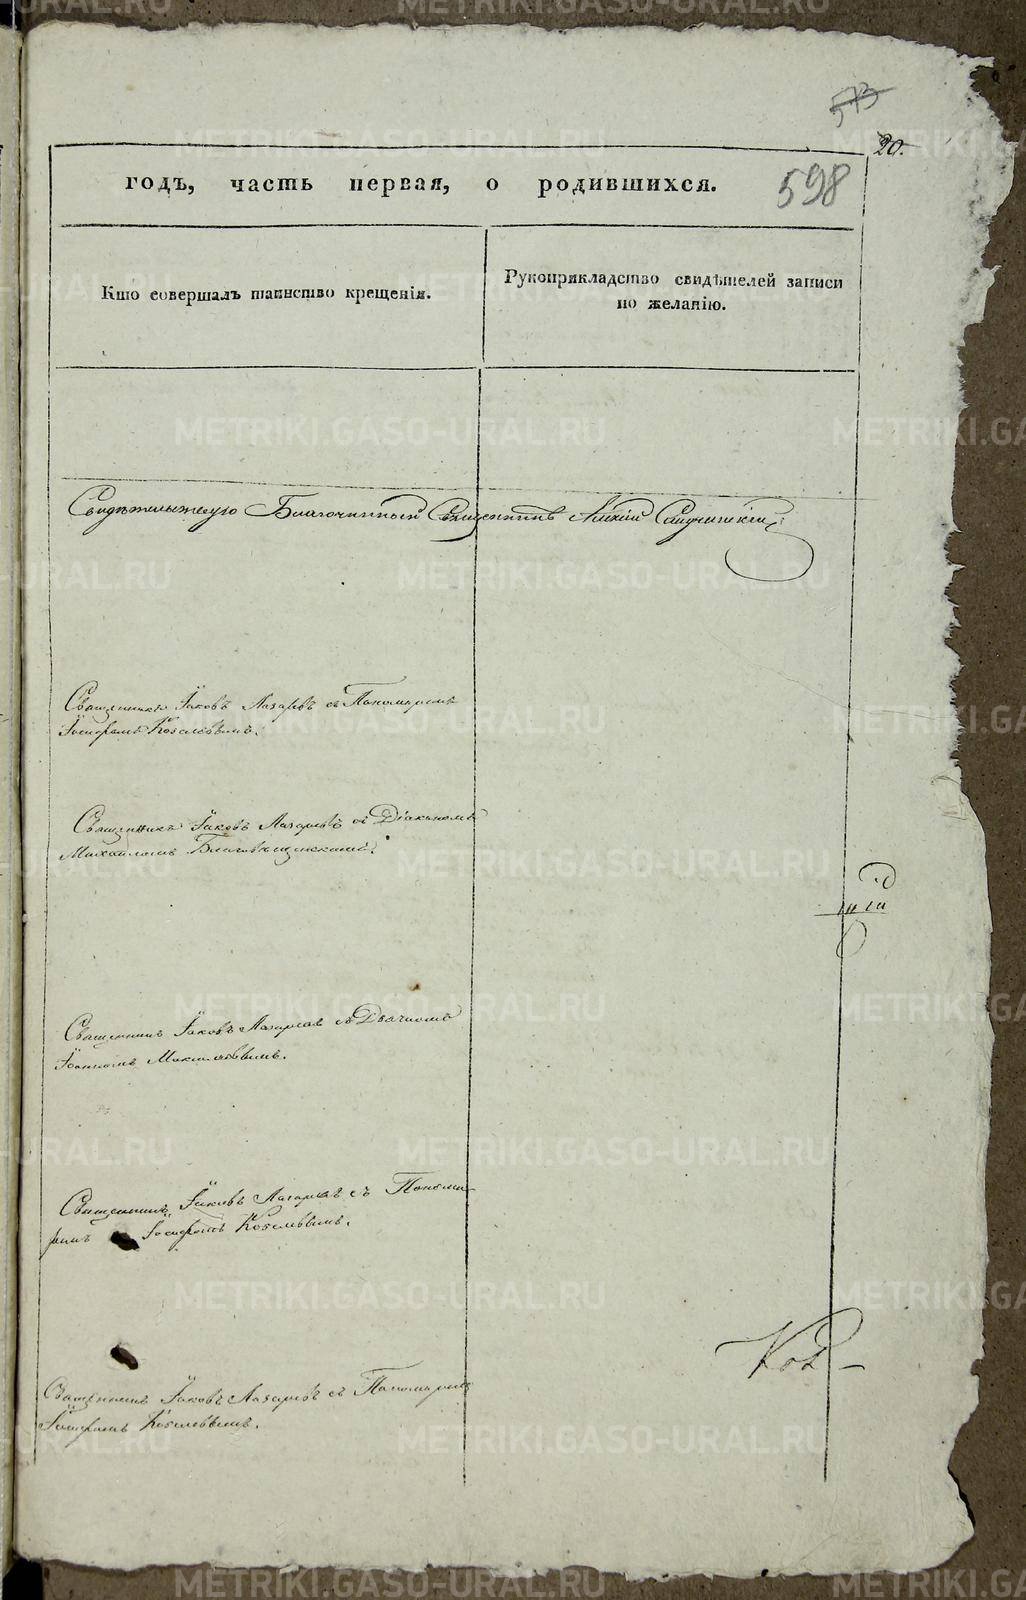 573
20.
годъ, часть первая, о родившихся.
598
Кто совершалъ таинство крещенія.
Рукоприкладство свидѣтелей записи
по желанію.
Свидѣтельствую Благочинный Священникъ
Священникъ Іаковъ Лазаревъ съ Пономаремъ
Іосифомъ
Священникъ Іаковъ Лазаревъ съ Діакономъ
Михаиломъ Благовѣщенскимъ.
Священникъ Іаковъ Лазаревъ съ Дьячкомъ
Іоанномъ
Священникъ Іаковъ Лазаревъ съ Понома-
ремъ Іосифомъ
Священникъ Іаковъ Лазаревъ съ Пономаремъ
Іосифомъ
METRIKI.GASO-URAL.RU